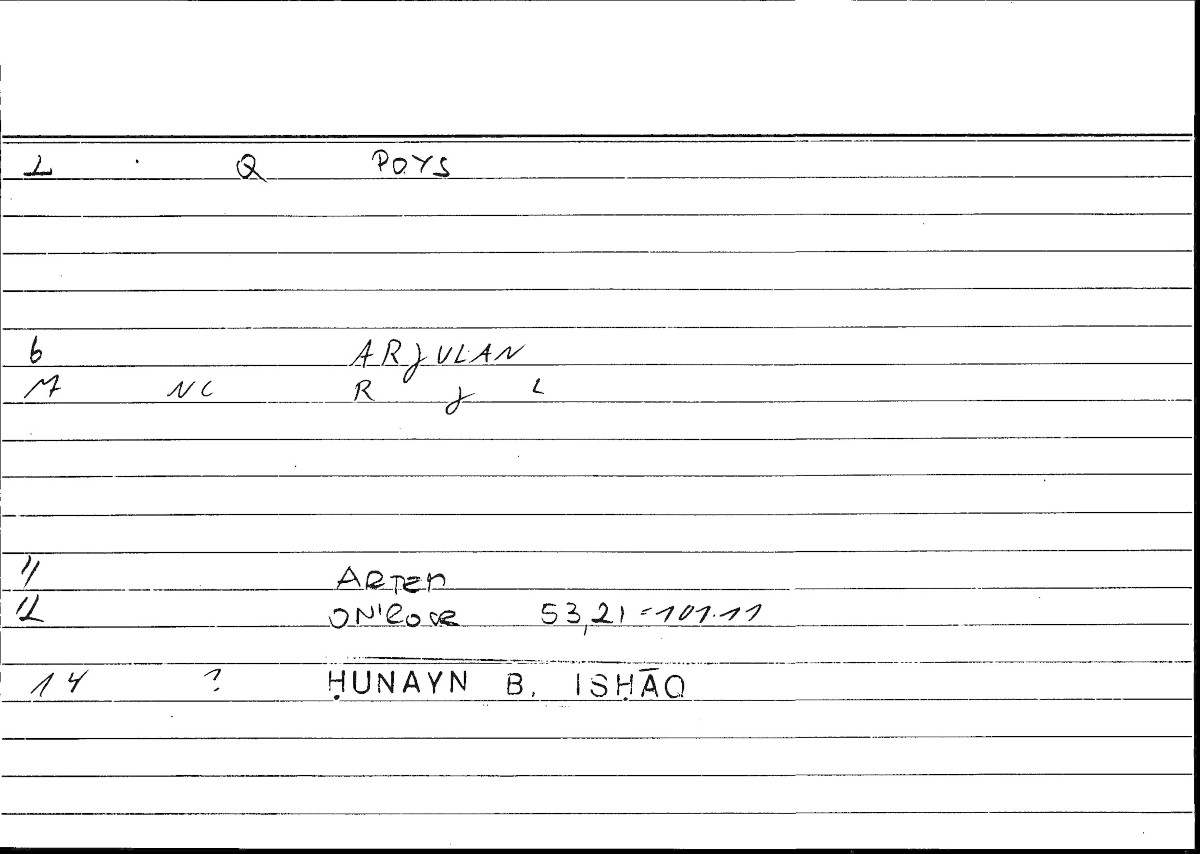 Q POYS
6 ARJULAN
M NC R J L
11 ARTEM
12 53,21=101.11
14 ? ḤUNAYN B. ISḤĀQ